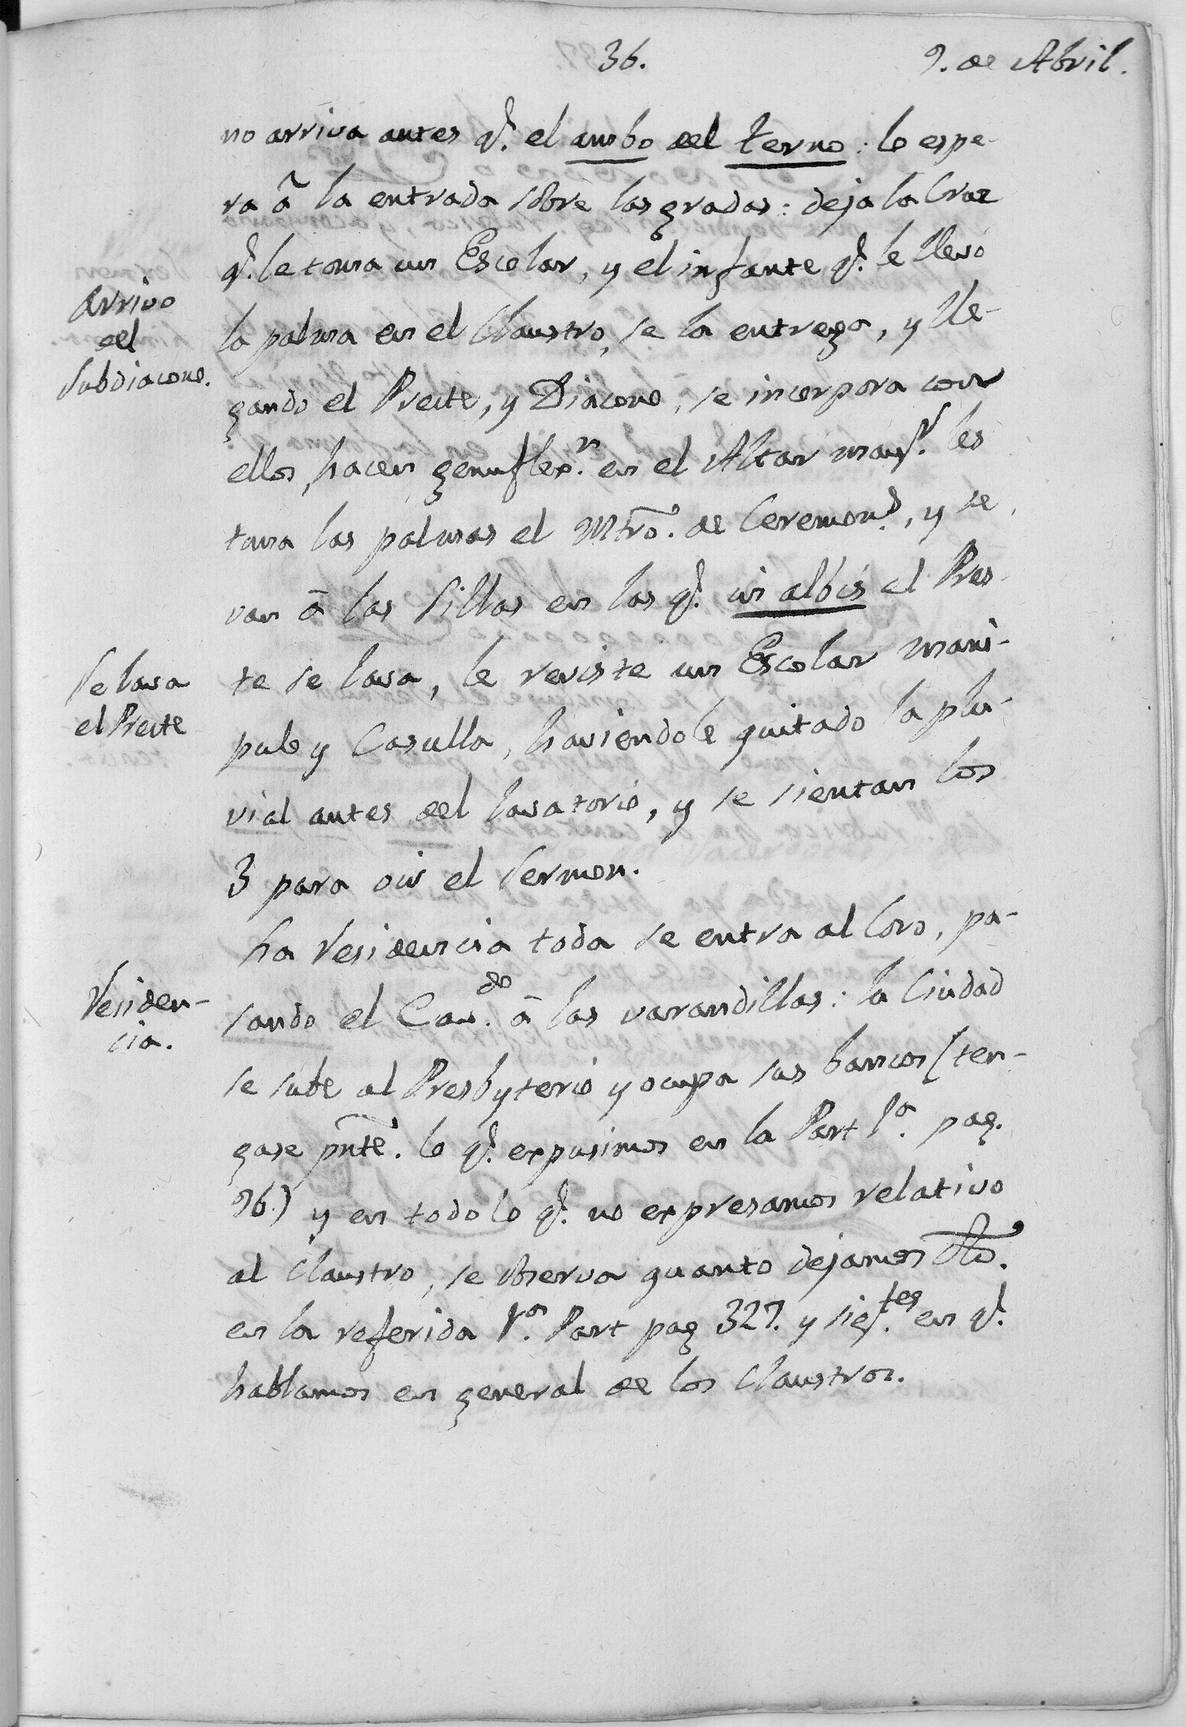 36.
9. de Abril.
no arriva antes q.^e el ambo del terno: lo espe-
ra â la entrada sobre las gradas: deja la Cruz
q.^e le toma un Escolar, y el infante q.^e le llevó
la palma en el Claustro, se la entrega, y lle-
gando el Preste, y Diácono, se incorpora con
ellos, hacen genuflex.^n en el Altar may.^r les
toma las palmas el Mtro. de Ceremon.^s, y se
van â las sillas en las q.^e in albis el Pres-
te se lava, le reviste un Escolar mani-
pulo y Casulla, haviendole quitado la plu-
vial antes del lavatorio, y se sientan los
3 para oir el Sermon.
La Residencia toda se entra al Coro, pa-
sando el Cav.^do â las varandillas: la Ciudad
se sube al Presbyterio y ocupa sus bancos (ten-
gase pnte. lo q.^e expusimos en la Part 1.^a pag.
96.) y en todo lo q.^e no expresamos relativo
al Claustro, se observa quanto dejamos dho.
en la referida 1.^a Part pag 327. y sig.^tes en q.^e
hablamos en general de los Claustros.
Arrivo
del
Subdiacono.
Se lava
el Preste
Residen-
cia.